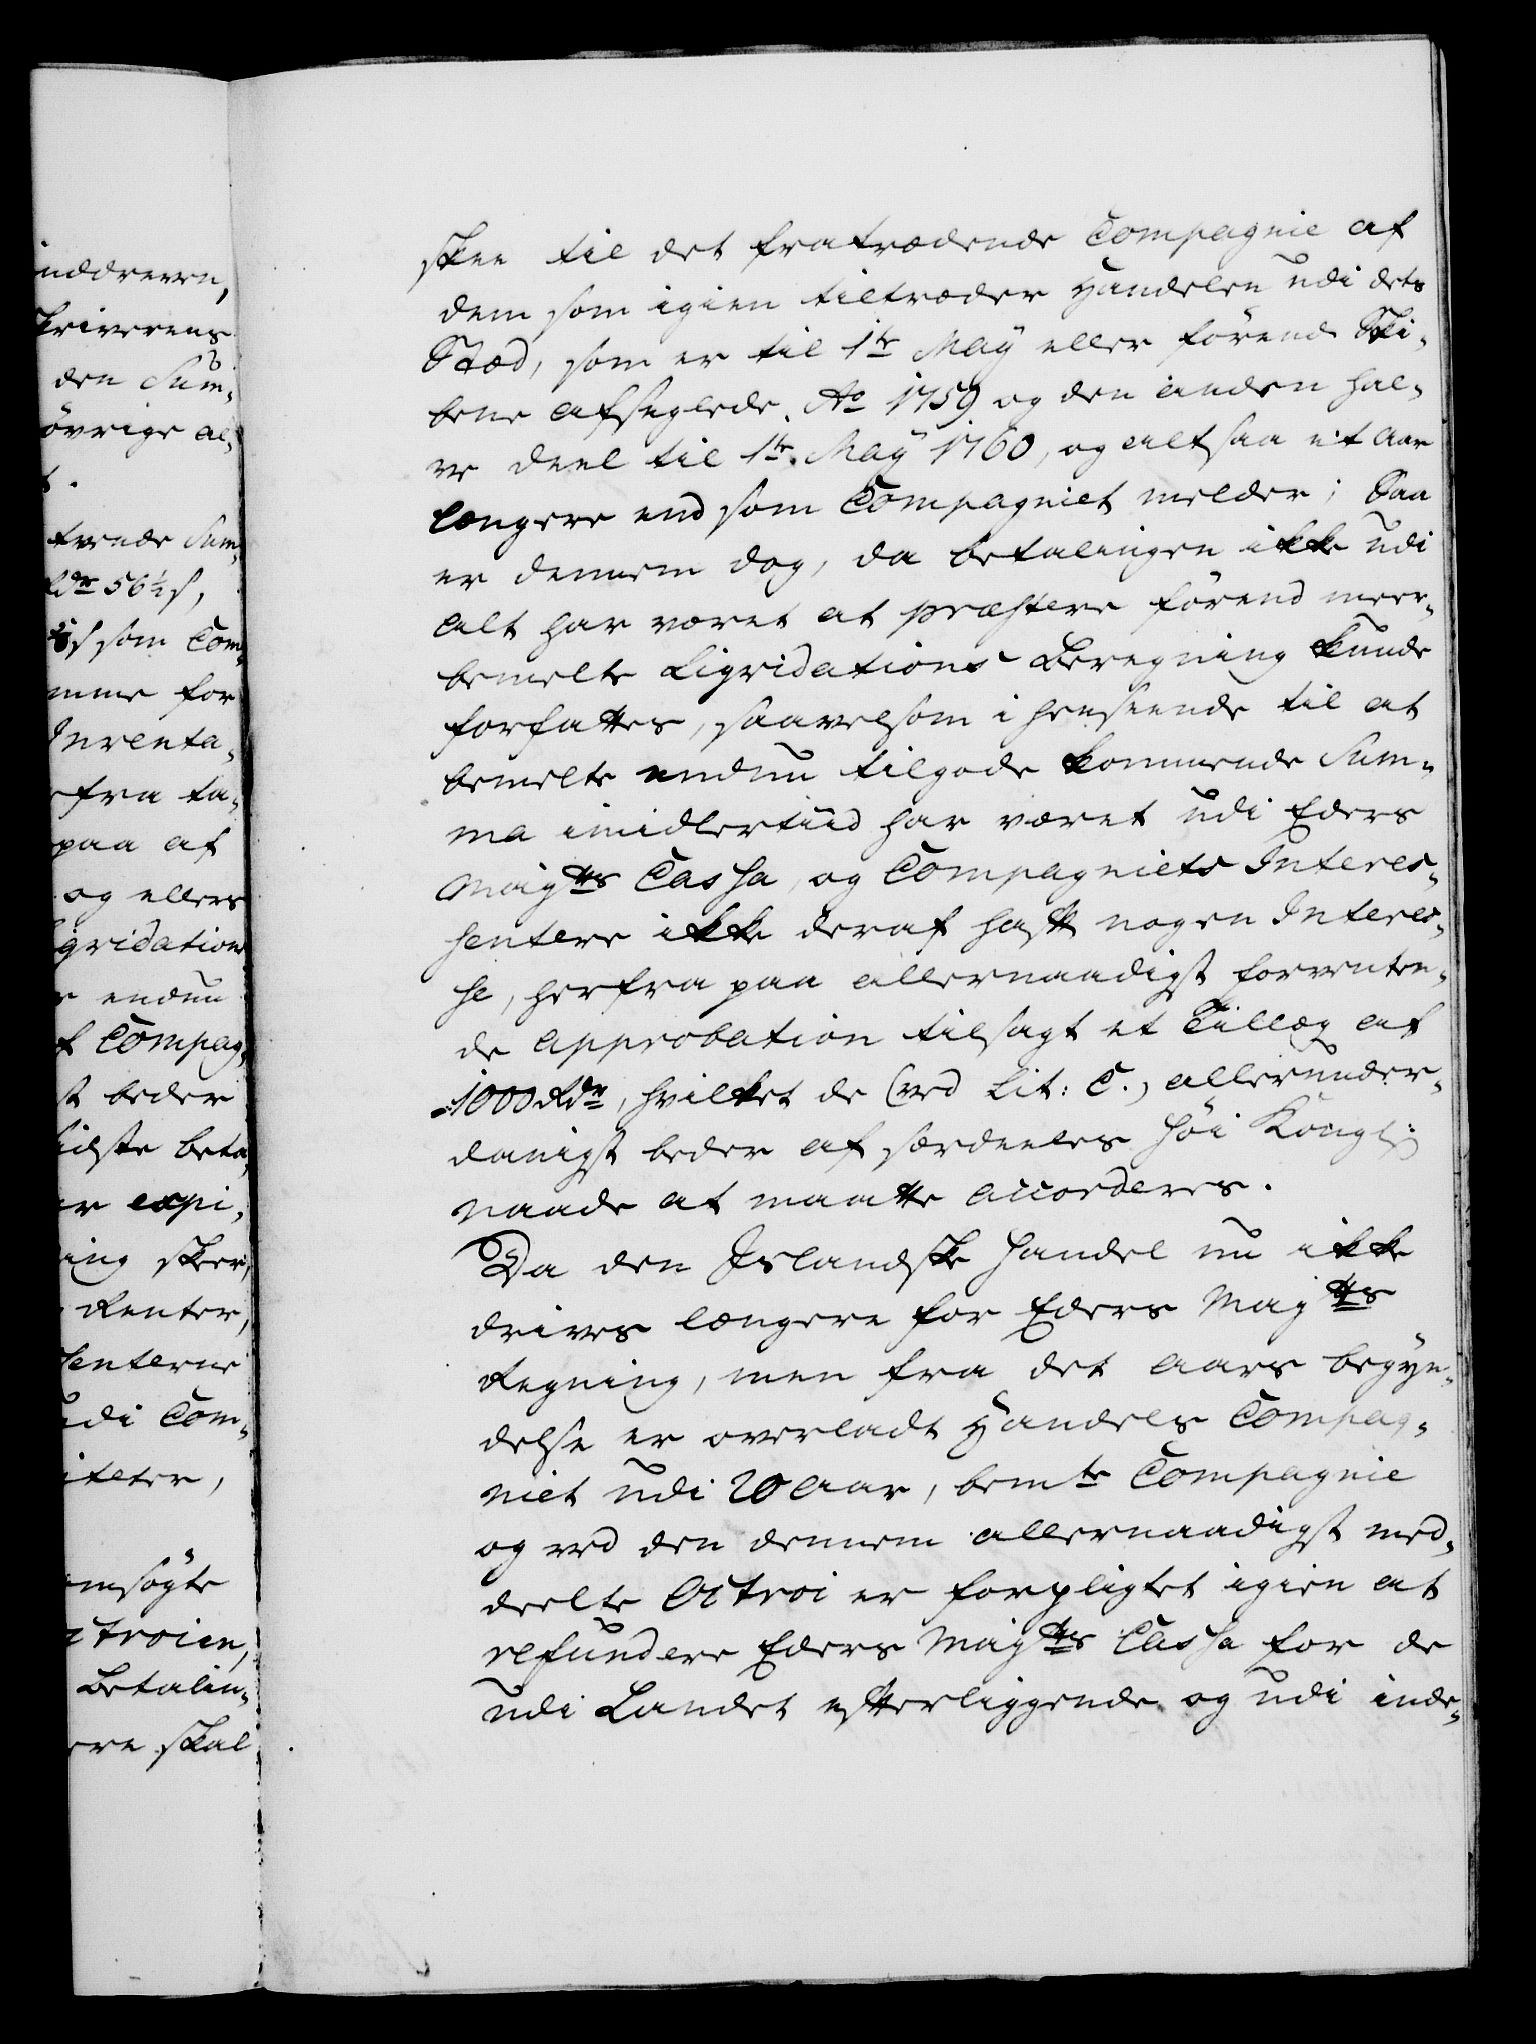 inddreven,
skrivrens
den Sum¬
övrige al¬
t.
tvende Sum¬
Rdr 56½ s,
s som Com¬
mme for
Inventa¬
fra ta¬
paa af
og ellers
iqvidations
endnu
f Compag¬
st beder
sidste beta¬
er expi¬
ing skeer,
Renter,
senterne
udi Com¬
iteter,
msögte
ctroien,
Betalin¬
ere skal
skee til det fratrædende Compagnie af
dem som igien tiltræder Handelen udi dets
Stæd, som er til 1te May eller förend Ski¬
bene afseglede Ao 1759 og den anden hal¬
ve deel til 1te May 1760, og altsaa et Aar
længere end som Compagniet melder; Saa
er dennem dog, da betalingen ikke udi
alt har været at præstere förend meer¬
bemelte Liqvidations Beregning kunde
forfattes, saavelsom i henseende til at
bemelte endnu tilgode kommende Sum¬
ma imidlertiid har været udi Eders
Mayts Cassa, og Compagniets Interes¬
sentere ikke deraf haft nogen Interes¬
se, herfra paa allernaadigst forventen¬
de Approbation tilsagt et Tillæg af
1000 Rdr, hvilket de (ved Lit: C.) allerunder¬
danigst beder af særdeeles höi Kongl:
Naade at maatte accorderes.
Da den Islandske Handel nu ikke
drives længere for Eders Mayts
Regning, men fra det Aars begyn¬
delse er overladt Handels Compag¬
niet udi 20 Aar, bemte Compagnie
og ved den dennem allernaadigst med¬
deelte Octroi er forpligtet igien at
refundere Eders Mayts Cassa for de
udi Landet efterliggende og udi inde¬